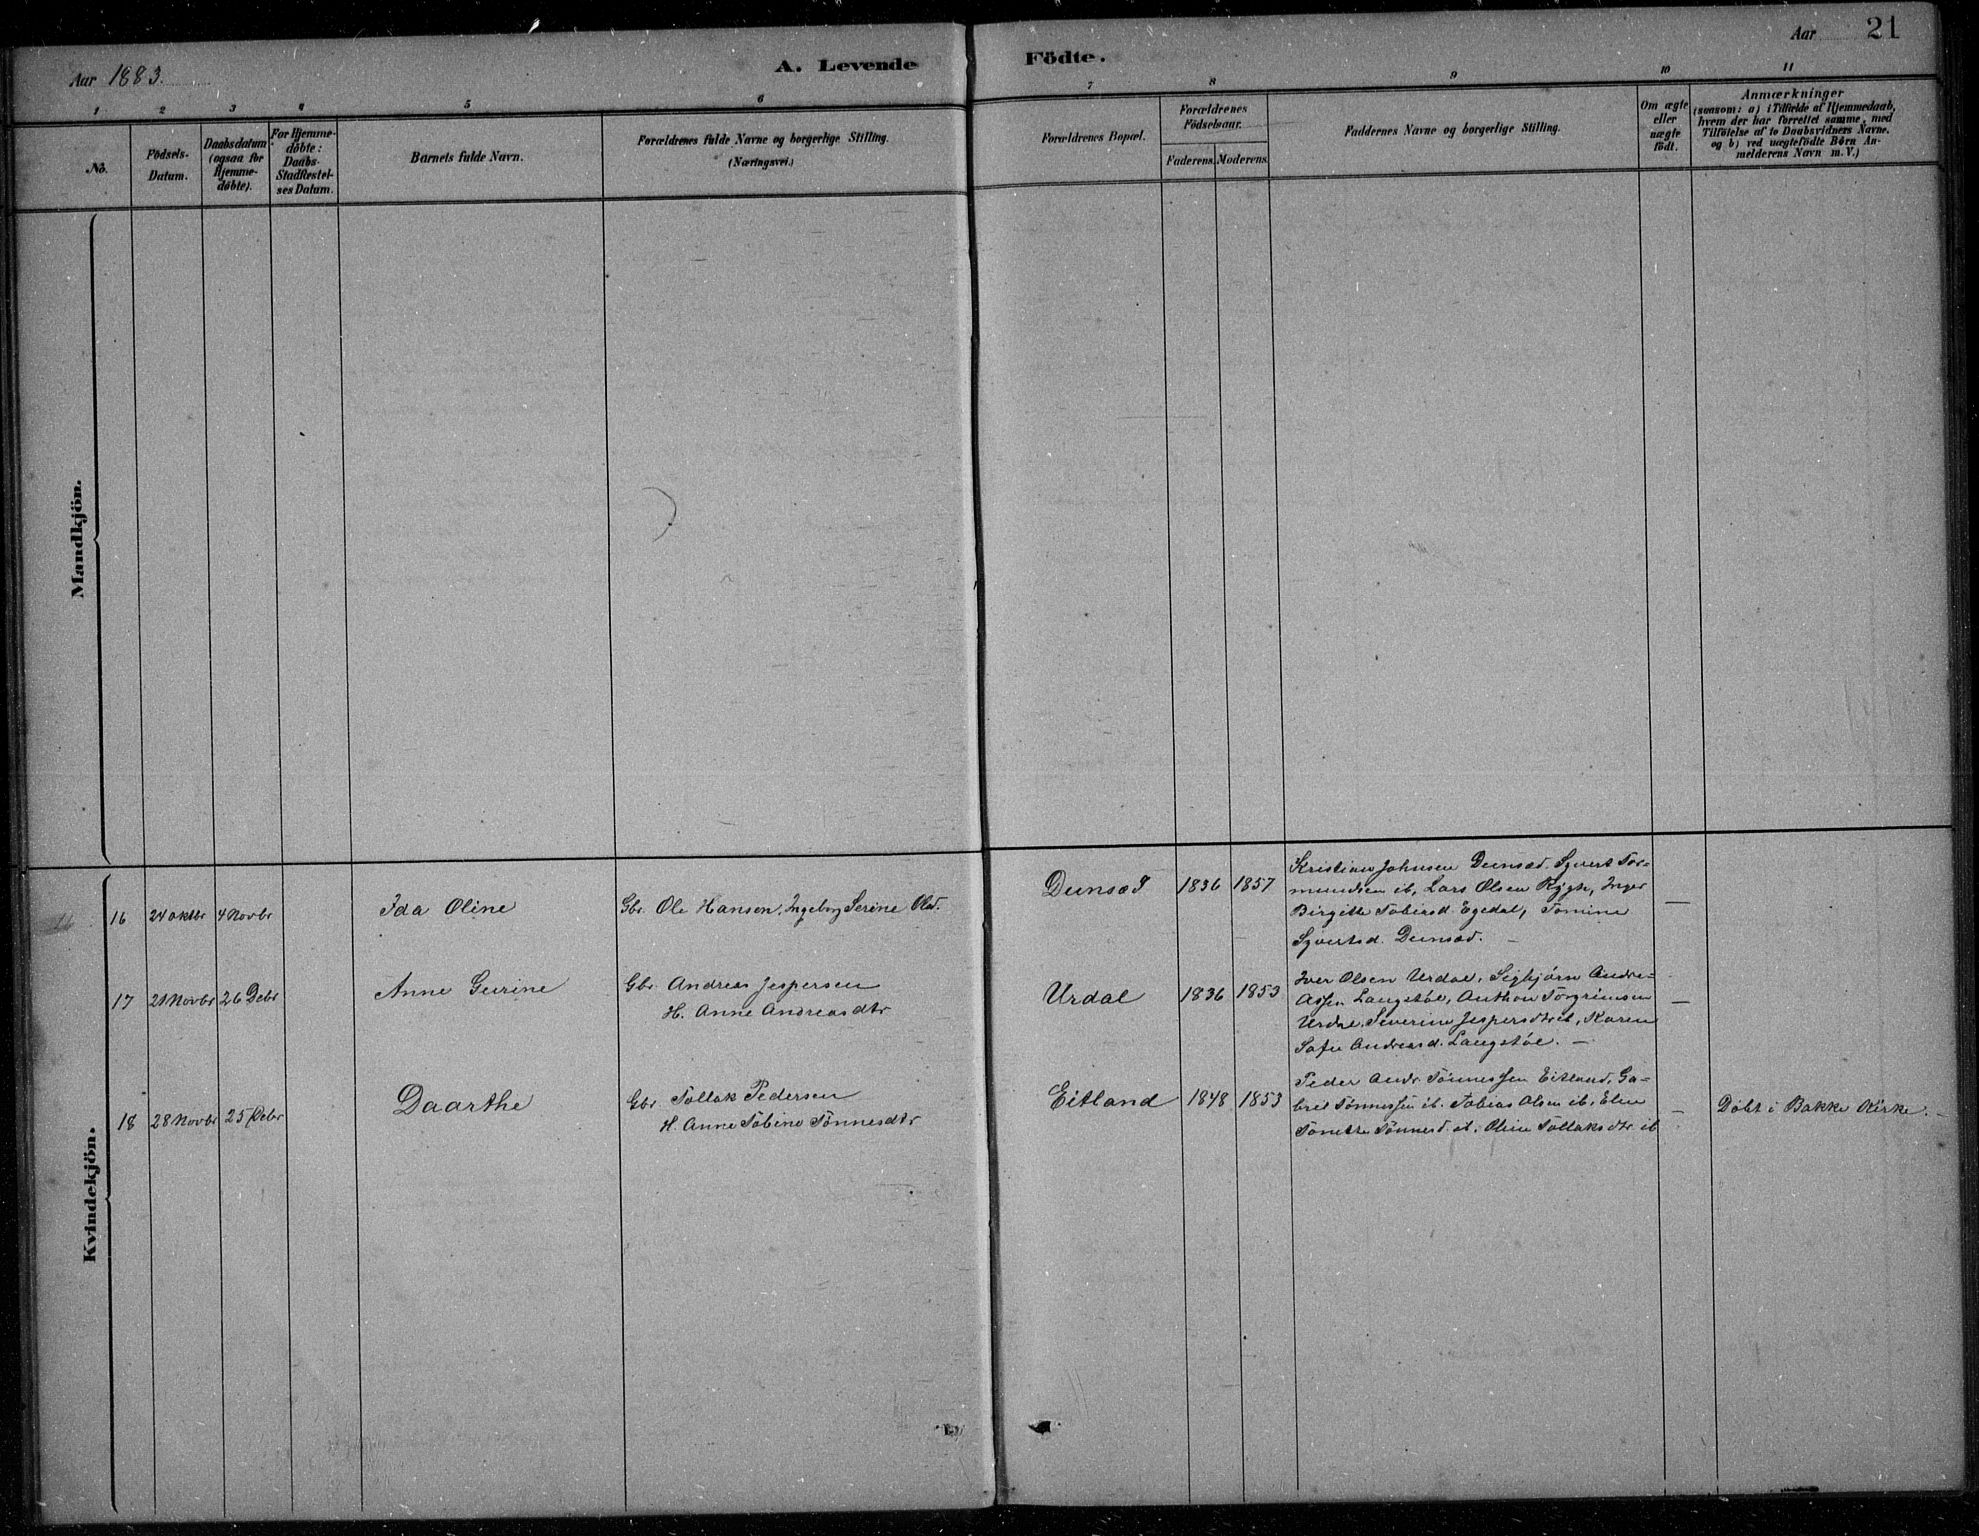 Aar 1883.
A. Levende Födte.
Aar 21
1 2 3 4 5 6 7 8 9 10 11
No.
Födsels-
Datum.
Daabsdatum
(ogsaa for
Hjemme-
døbte).
For Hjemme-
døbte:
Daabs-
Stadfæstel-
ses Datum.
Barnets fulde Navn.
Forældrenes fulde Navne og borgerlige Stilling.
(Næringsvei.)
Forældrenes Bopæl.
Forældrenes
Födselsaar.
Faderens. Moderens.
Faddernes Navne og borgerlige Stilling.
Om ægte
eller
uægte
födt.
Anmærkninger
(saasom: a) i Tilfælde af Hjemmedaab,
hvem der har forrettet samme, med
Tilföielse af to Daabsvidners Navne.
og b) ved uægtefödte Börn An-
melderens Navn m. V.)
Mandkjön.
Kvindekjön.
16 24 oktbr 4 Novbr Ida Oline Gbr. Ole Hansen, Ingeborg Serine Olsd. Dunsæd 1836 1857
Kristian Johnsen Dunsæd. Syvert Tor-
mundsen ib, Lars Olsen Rygh, Inger
Birgitte Tobiasd. Egedal, Tomine
Syvertsd. Dunsæd. —
—
17 21 Novbr 26 Debr Anne Gurine Gbr. Andreas Jespersen
H. Anne Andreasdtr
Urdal 1836 1853
Iver Olsen Urdal, Sigbjörn Andre-
assen Langstöl, Anthon Torgrimsen
Urdal, Severine Jespersdtr ib, Karen
Sofie Andreasd. Langstöl. —
—
18 28 Novbr 25 Debr Daarthe Gbr Tollak Pedersen
H. Anne Tobine Tönnesdtr
Eitland 1848 1853
Peder Andr. Tönnessen Eitland, Ga-
briel Tönnessen ib. Tobias Olsen ib. Elen
Tonette Tönnesd. ib. Oline Tollaksdtr. ib
—
Döbt i Bakke Kirke. —